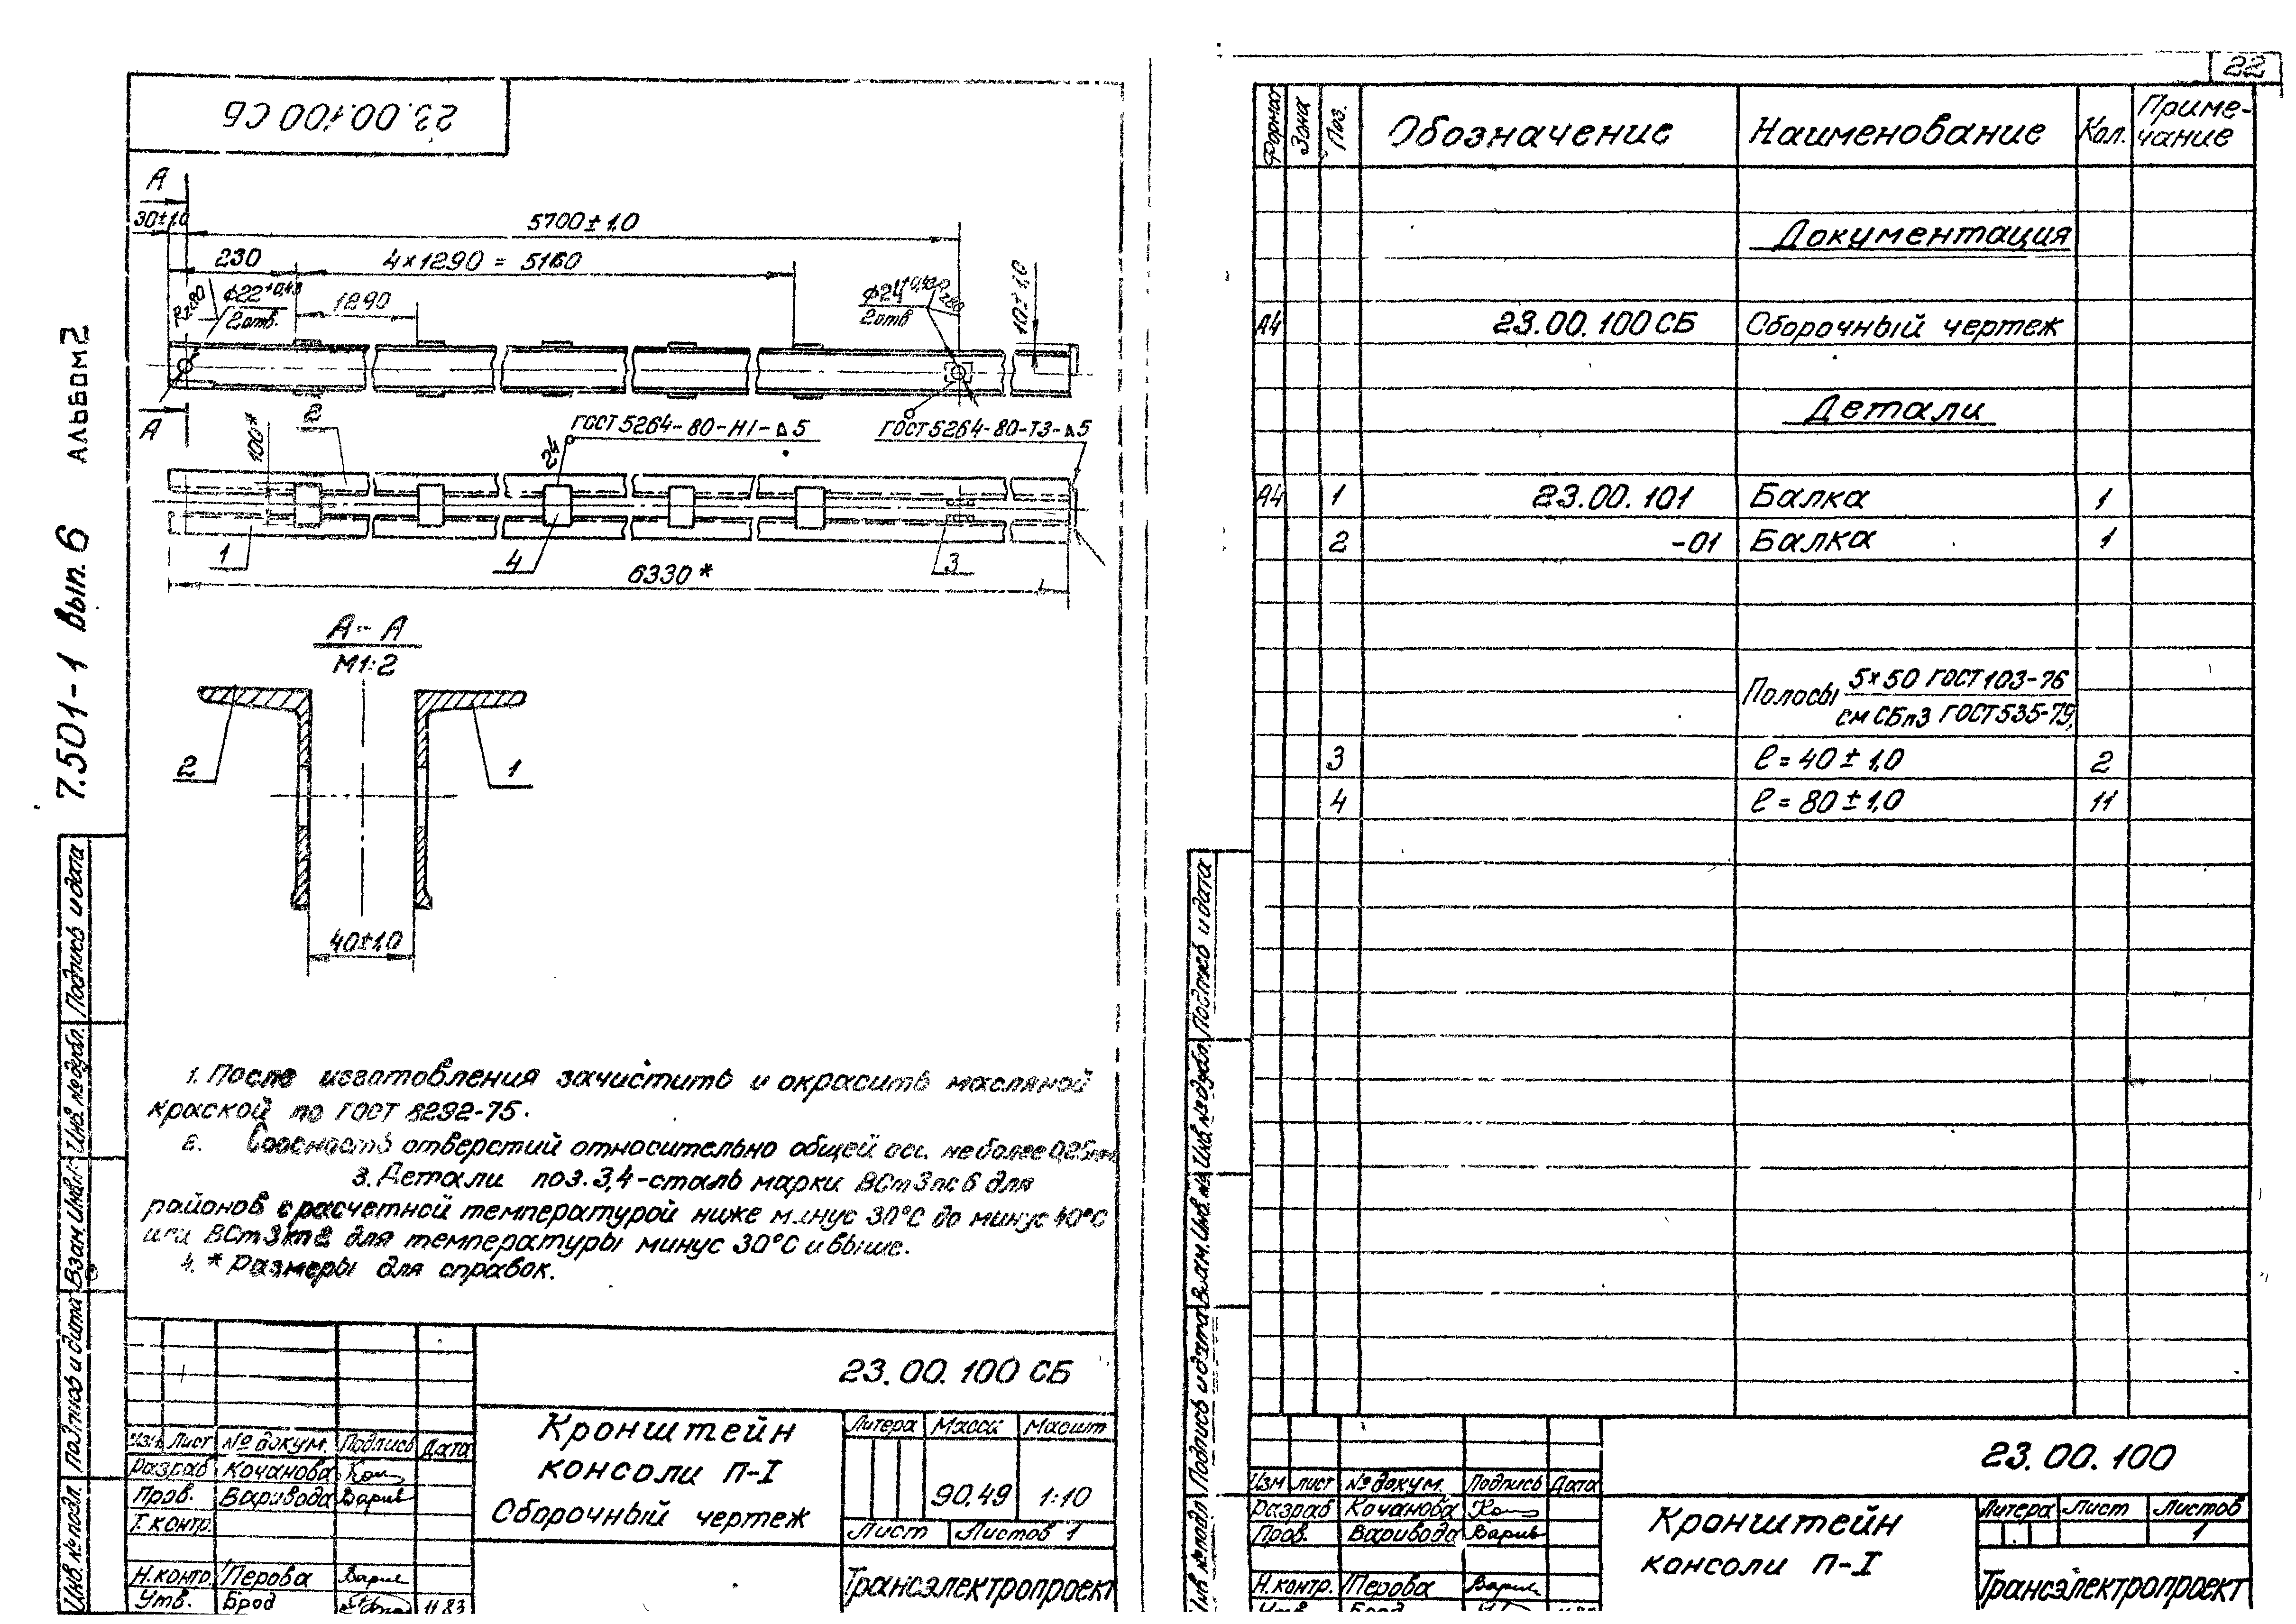 23.00.100 СБ
А
30±1,0
5700±1,0
230
4×1290 = 5160
1290
Rz80
ϕ22+0,43
2отв.
ϕ24
2отв
10±1,0
А
100*
2
24
ГОСТ 5264-80-Н1-⊿5
ГОСТ 5264-80-Т3-⊿5
1
4
3
6330*
А-А
М1:2
2
1
40±1,0
1. После изготовления зачистить и окрасить масляной
краской по ГОСТ 8292-75.
2. Соосность отверстий относительно общей оси не более 0,25мм
3. Детали поз. 3,4 - сталь марки ВСт3пс6 для
районов с расчетной температурой ниже минус 30°С до минус 40°С
или ВСт3кп2 для температуры минус 30°С и выше.
4. * Размеры для справок.
7.501-1 Вып. 6 Альбом 2
Инв. № подл. Подпись и дата Взам. Инв. № Инв. № дубл. Подпись и дата
23.00.100 СБ
Изм Лист № докум. Подпись Дата
Разраб Кочанова
Пров. Варивода Варив
Т. контр.
Н. контр. Перова
Утв. Брод 11.83
Кронштейн
консоли П-I
Сборочный чертеж
Литера Масса Масшт
90,49 1:10
Лист Листов 1
Трансэлектропроект
22
Формат Зона Поз. Обозначение Наименование Кол. Приме-
чание
Документация
А4 23.00.100 СБ Сборочный чертеж
Детали
А4 1 23.00.101 Балка 1
2 -01 Балка 1
Полосы 5×50 ГОСТ 103-76
см СБп3 ГОСТ 535-79,
3 ℓ = 40 ± 1,0 2
4 ℓ = 80 ± 1,0 11
Инв № подл Подпись и дата Взам. Инв. № Инв. № дубл. Подпись и дата
23.00.100
Изм лист № докум. Подпись Дата
Разраб Кочанова
Пров. Варивода Варив
Н. контр. Перова
Утв. Брод
Кронштейн
консоли П-I
Литера Лист Листов
1
Трансэлектропроект